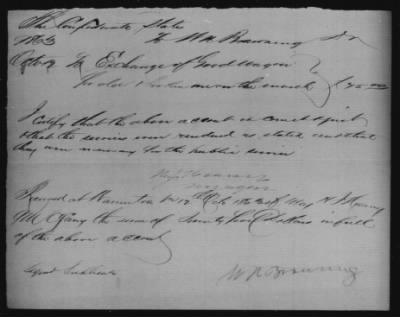 The Confederate States
1863 To W R Browning Dr
Octo 12 To Exchange of Good Wagon
for one broken on the march $75.00
I certify that the above account is correct & just
that the service were rendered as stated and that
they were necessary for the public service
Received at 12 Oct 1863 of Maj
QM C.S. Army the sum of Seventy five dollars in full
of the above account
Signed Duplicate
W R Browning